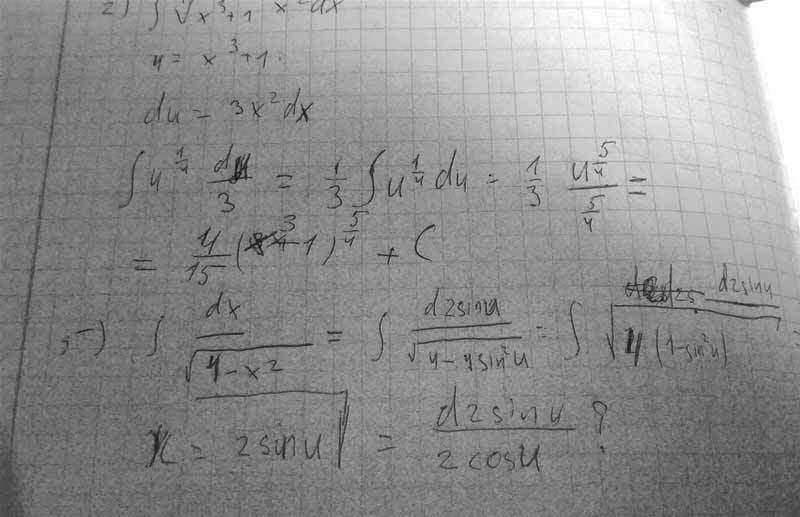 2) ∫ ∜x³+1 x²dx
u = x³+1.
du = 3x²dx
∫ u^¼ du/3 = 1/3 ∫ u^¼ du = 1/3 u^(5/4)/(5/4) =
= 4/15 (x³+1)^(5/4) + C
∫ dx/√(4-x²) = ∫ d2sinu/√(4-4sin²u) = ∫ d2sinu/√(4(1-sin²u)) =
x = 2sinu | = d2sinu/2cosu ?